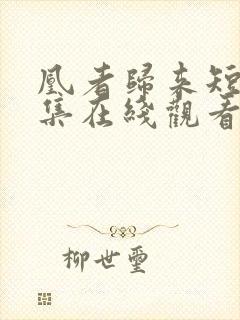 凰者歸来短
集在綫觀看
柳世璽